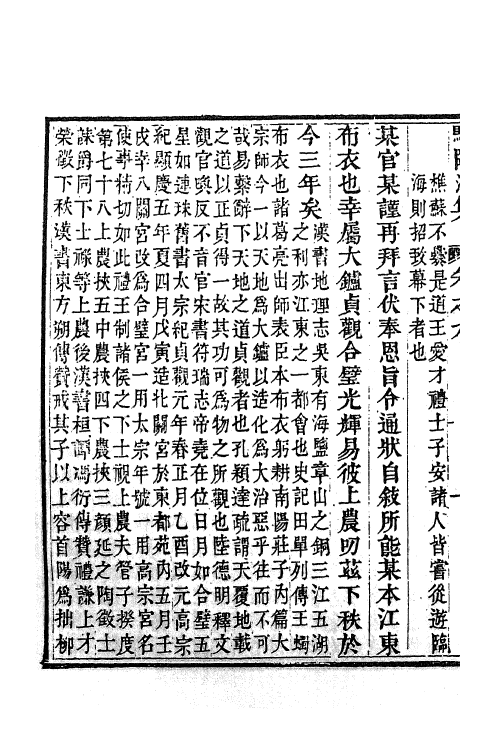 樵蘇不爨是道王愛才禮士子安諸人皆嘗從遊臨
海則招致幕下者也
某官某謹再拜言伏奉恩旨令通狀自敘所能某本江東
布衣也幸屬大鑪貞觀合璧光輝易彼上農叨茲下秩於
今三年矣漢書地理志吳東有海鹽章山之銅三江五湖
之利亦江東之一都會也史記田單列傳王蠋
布衣也諸葛亮出師表臣本布衣躬耕南陽莊子內篇大
宗師今一以天地爲大鑪以造化爲大冶惡乎往而不可
哉易繫辭下天地之道貞觀者也孔穎達疏謂天覆地載
之道以正貞得一故其功可爲物之所觀也陸德明釋文
觀官喚反不音官宋書符瑞志帝堯在位日月如合璧五
星如連珠舊書太宗紀貞觀元年春正月乙酉改元高宗
紀顯慶五年夏四月戊寅造八關宮於東都苑內五月壬
戌幸八關宮改爲合璧宮一用太宗年號一用高宗宮名
使事特切如此禮王制諸侯之下士視上農夫管子揆度
第七十八上農挾五中農挾四下農挾三顏延之陶徵士
誄爵同下士祿等上農後漢書桓譚馮衍傳贊禮謙上才
榮微下秩漢書東方朔傳贊戒其子以上容首陽爲拙柳